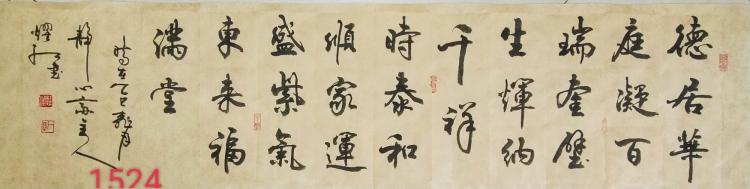 德居華
庭凝百
瑞奎璧
生輝納
千祥
時泰和
順家運
盛紫氣
東来福
满堂
時在乙巳月
静心齋主人
書
1524